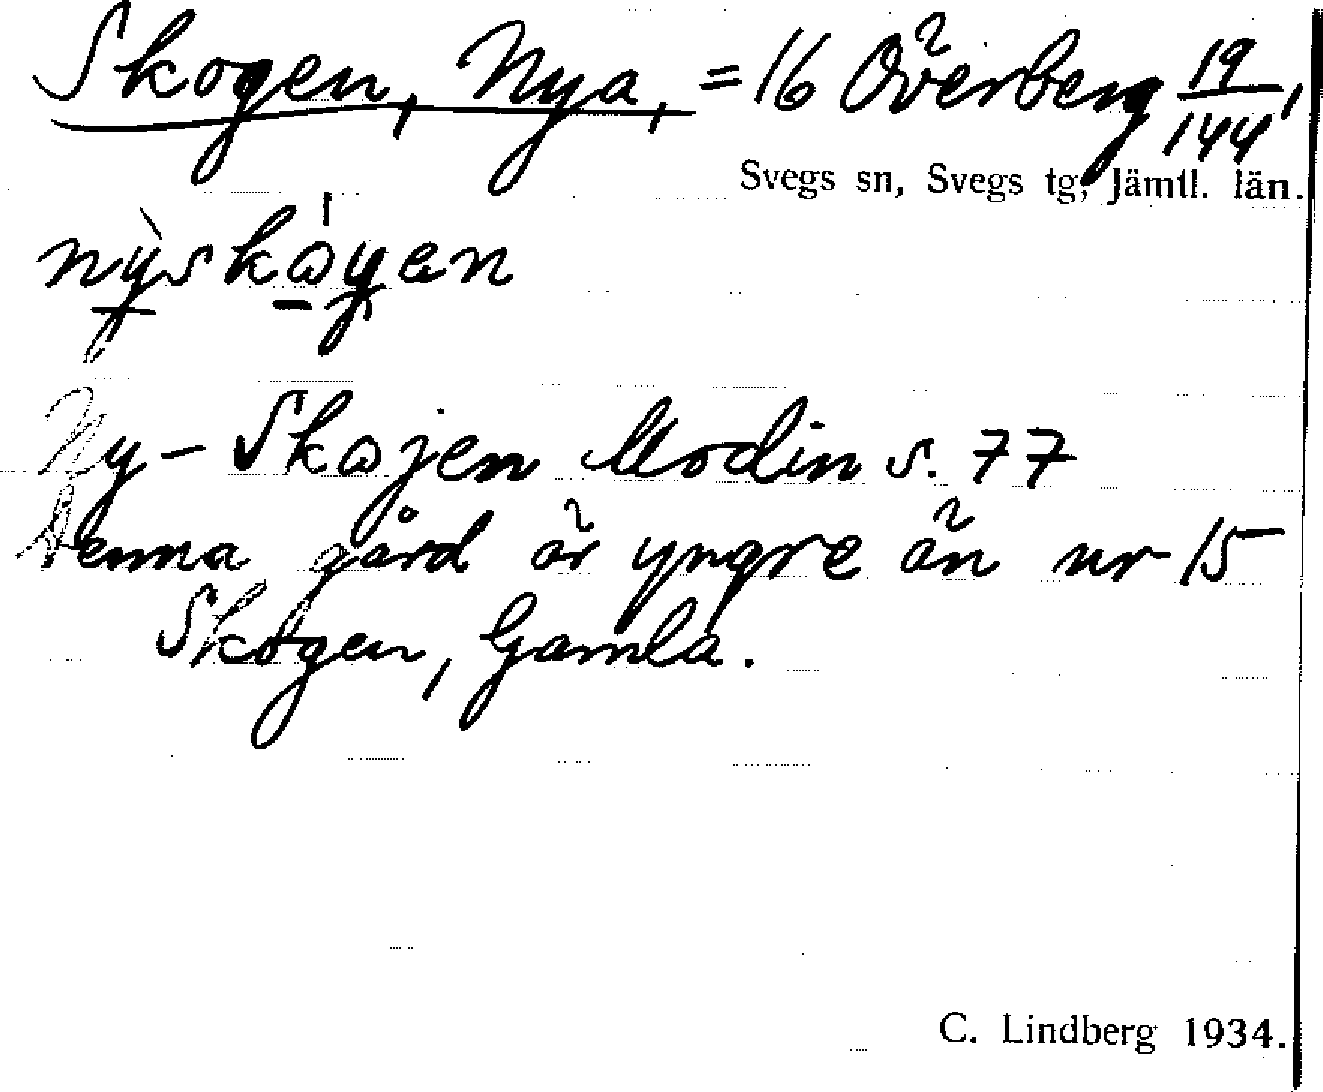 Skogen, Nya, = 16 Överberg 19/144,
Svegs sn, Svegs tg, Jämtl. län.
nỳskɷ́yen
Ny-Skɷjen Modin s. 77
Denna gård är yngre än nr 15
Skogen, Gamla.
C. Lindberg 1934.